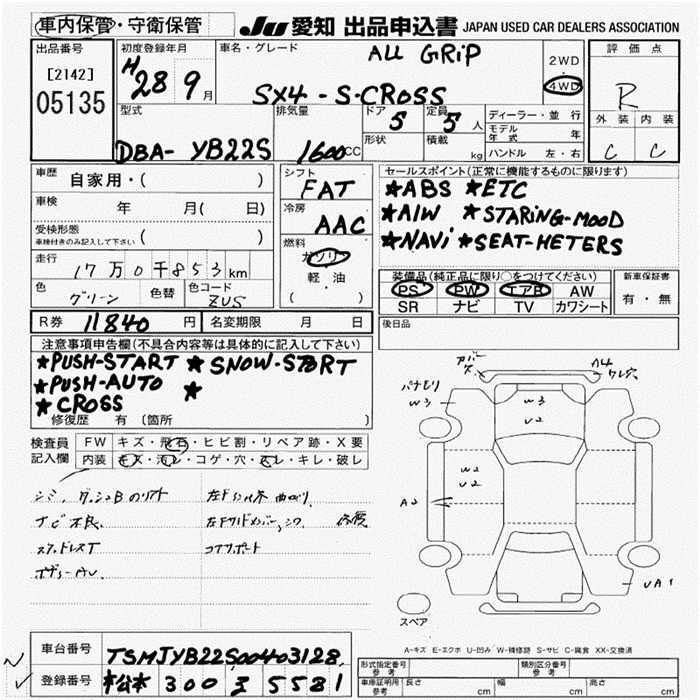 車内保管・守衛保管
JU 愛知 出品申込書 JAPAN USED CAR DEALERS ASSOCIATION
出品番号
[2142]
05135
初度登録年月
H 28 9月
車名・グレード
ALL GRiP
SX4-S-CROSS
2WD
4WD
評価点
R
外装 内装
C C
型式
DBA-YB22S
排気量
1600cc
ドア 5
定員 5人
形状
積載 kg
ディーラー・並行
モデル年式 年
ハンドル 左・右
車歴 自家用・( )
車検 年 月( 日)
受検形態
車検付きのみ記入して下さい ( )
走行
17万0千853km
色 グリーン
色替
色コード ZUS
シフト
FAT
冷房
AAC
燃料
ガソリン
軽油
( )
セールスポイント(正常に機能するものに限ります)
★ABS ★ETC
★A/W ★STARiNG-MOOD
★NAVi ★SEAT-HETERS
装備品(純正品に限り○をつけてください)
PS PW エアB AW
SR ナビ TV カワシート
新車保証書
有・無
R券 11840円
名変期限 月 日
後日品
注意事項申告欄(不具合内容等は具体的に記入して下さい)
★PUSH-START ★SNOW-START
★PUSH-AUTO ★
★CROSS
修復歴 有 〔箇所 〕
検査員記入欄
FW キズ・飛石・ヒビ割・リペア跡・X要
内装 キズ・汚レ・コゲ・穴・スレ・キレ・破レ
ナビ不良
コアサポート
W3
W3
U2
W2
U2
A2
UA1
スペア
A-キズ E-エクボ U-凹み W-補修跡 S-サビ C-腐食 XX-交換済
車台番号 TSMJYB22S00403128
登録番号 300 5581
形式指定番号 参考
類別区分番号 参考
車庫証明用 参考
長さ cm
幅 cm
高さ cm